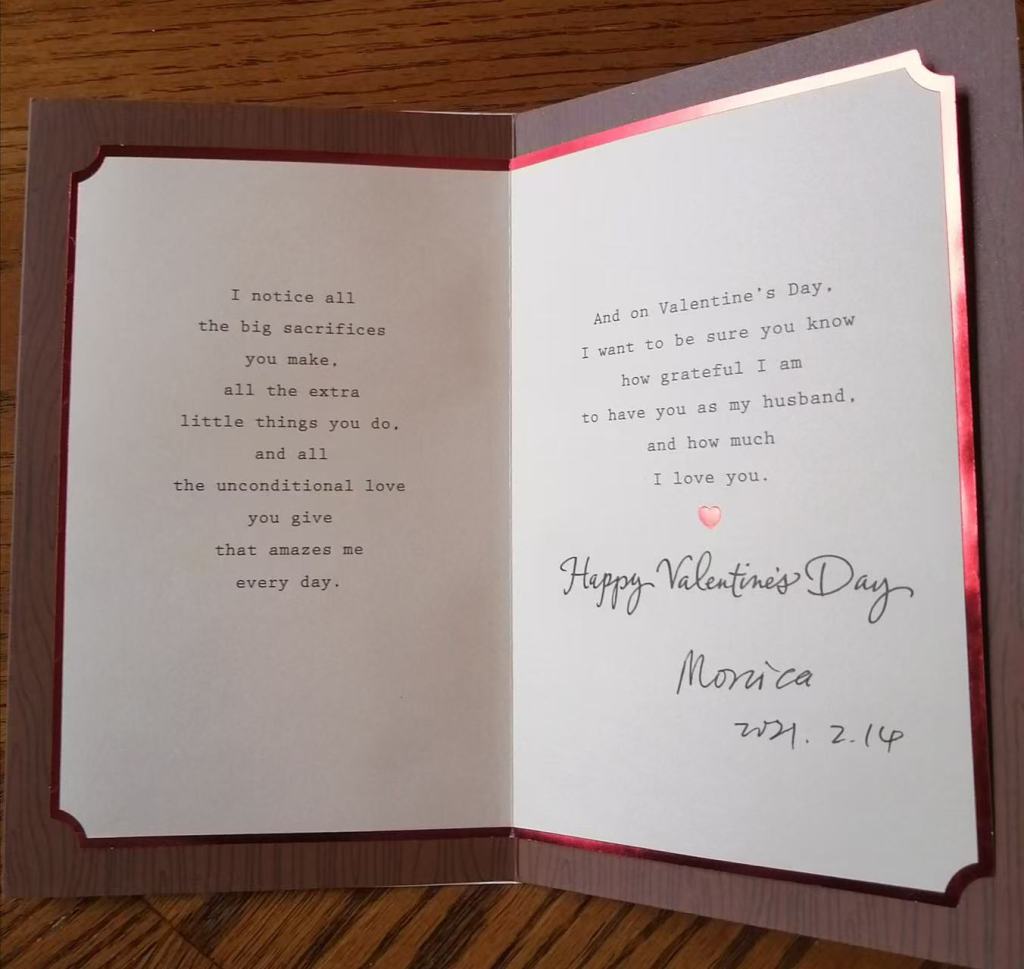 I notice all
the big sacrifices
you make,
all the extra
little things you do,
and all
the unconditional love
you give
that amazes me
every day.
And on Valentine's Day,
I want to be sure you know
how grateful I am
to have you as my husband,
and how much
I love you.
Happy Valentine's Day
Monica
2021. 2.14